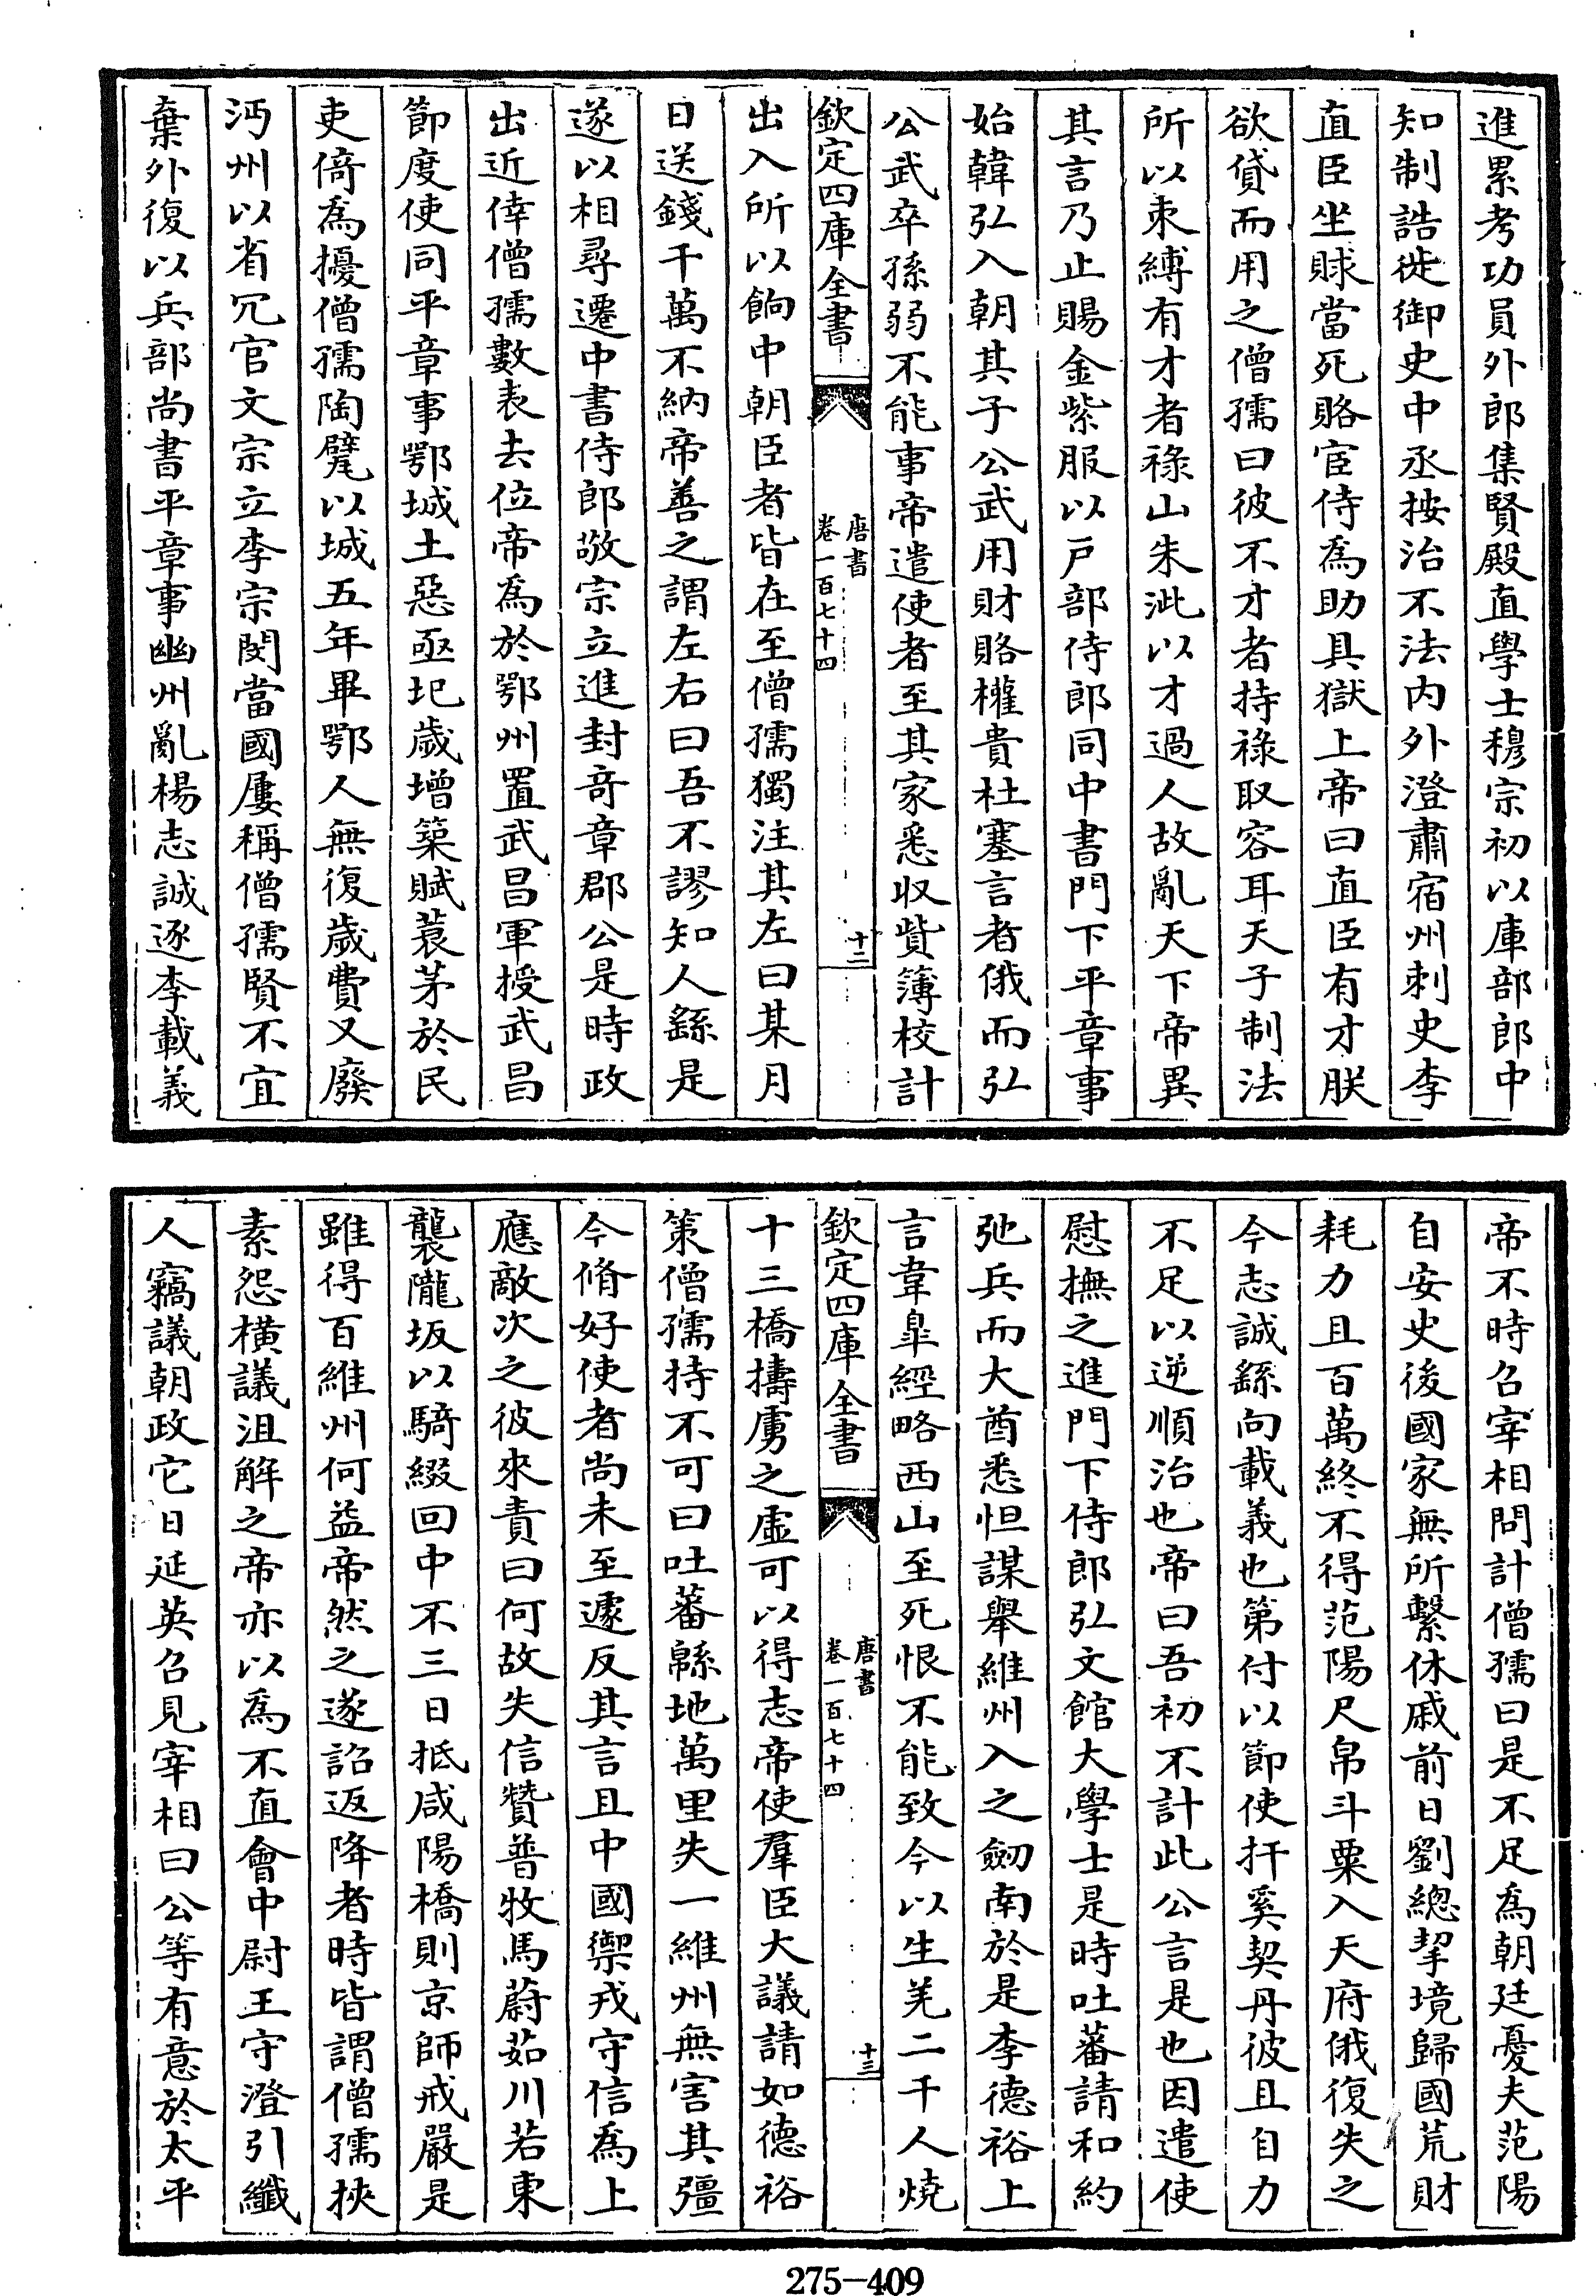 進累考功員外郎集賢殿直學士穆宗初以庫部郎中
知制誥徙御史中丞按治不法内外澄肅宿州刺史李
直臣坐賕當死賂宦侍為助具獄上帝曰直臣有才朕
欲貸而用之僧孺曰彼不才者持祿取容耳天子制法
所以束縛有才者祿山朱泚以才過人故亂天下帝異
其言乃止賜金紫服以戶部侍郎同中書門下平章事
始韓弘入朝其子公武用財賂權貴杜塞言者俄而弘
公武卒孫弱不能事帝遣使者至其家悉收貲簿校計
欽定四庫全書
唐書
卷一百七十四
十二
出入所以餉中朝臣者皆在至僧孺獨注其左曰某月
日送錢千萬不納帝善之謂左右曰吾不謬知人繇是
遂以相尋遷中書侍郎敬宗立進封奇章郡公是時政
出近倖僧孺數表去位帝為於鄂州置武昌軍授武昌
節度使同平章事鄂城土惡亟圮歲增築賦蓑茅於民
吏倚為擾僧孺陶甓以城五年畢鄂人無復歲費又廢
沔州以省冗官文宗立李宗閔當國屢稱僧孺賢不宜
棄外復以兵部尚書平章事幽州亂楊志誠逐李載義
帝不時召宰相問計僧孺曰是不足為朝廷憂夫范陽
自安史後國家無所繫休戚前日劉總挈境歸國荒財
耗力且百萬終不得范陽尺帛斗粟入天府俄復失之
今志誠繇向載義也第付以節使扞奚契丹彼且自力
不足以逆順治也帝曰吾初不計此公言是也因遣使
慰撫之進門下侍郎弘文館大學士是時吐蕃請和約
弛兵而大酋悉怛謀舉維州入之劒南於是李德裕上
言韋臯經略西山至死恨不能致今以生羌二千人燒
欽定四庫全書
唐書
卷一百七十四
十三
十三橋擣虜之虛可以得志帝使羣臣大議請如德裕
策僧孺持不可曰吐蕃緜地萬里失一維州無害其彊
今脩好使者尚未至遽反其言且中國禦戎守信為上
應敵次之彼來責曰何故失信贊普牧馬蔚茹川若東
襲隴坂以騎綴回中不三日抵咸陽橋則京師戒嚴是
雖得百維州何益帝然之遂詔返降者時皆謂僧孺挾
素怨橫議沮解之帝亦以為不直會中尉王守澄引纖
人竊議朝政它日延英召見宰相曰公等有意於太平
275-409